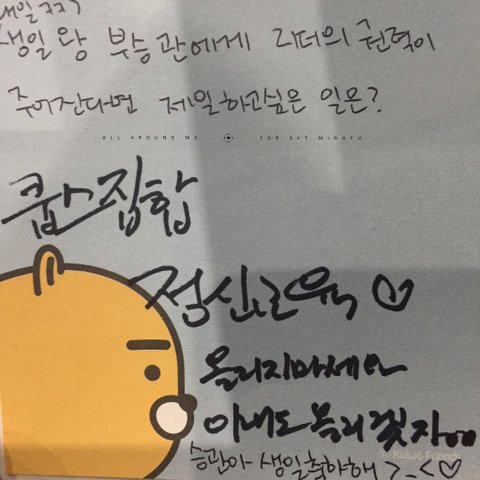 생일 왕 부승관에게 리더의 권력이
주어진다면 제일하고싶은 일은?
ALL AROUND ME FOR SVT MINGYU
쿱스집합
정신교육 ♡
올리지마세요
Kakao Friends
승관아 생일축하해 >_<♡